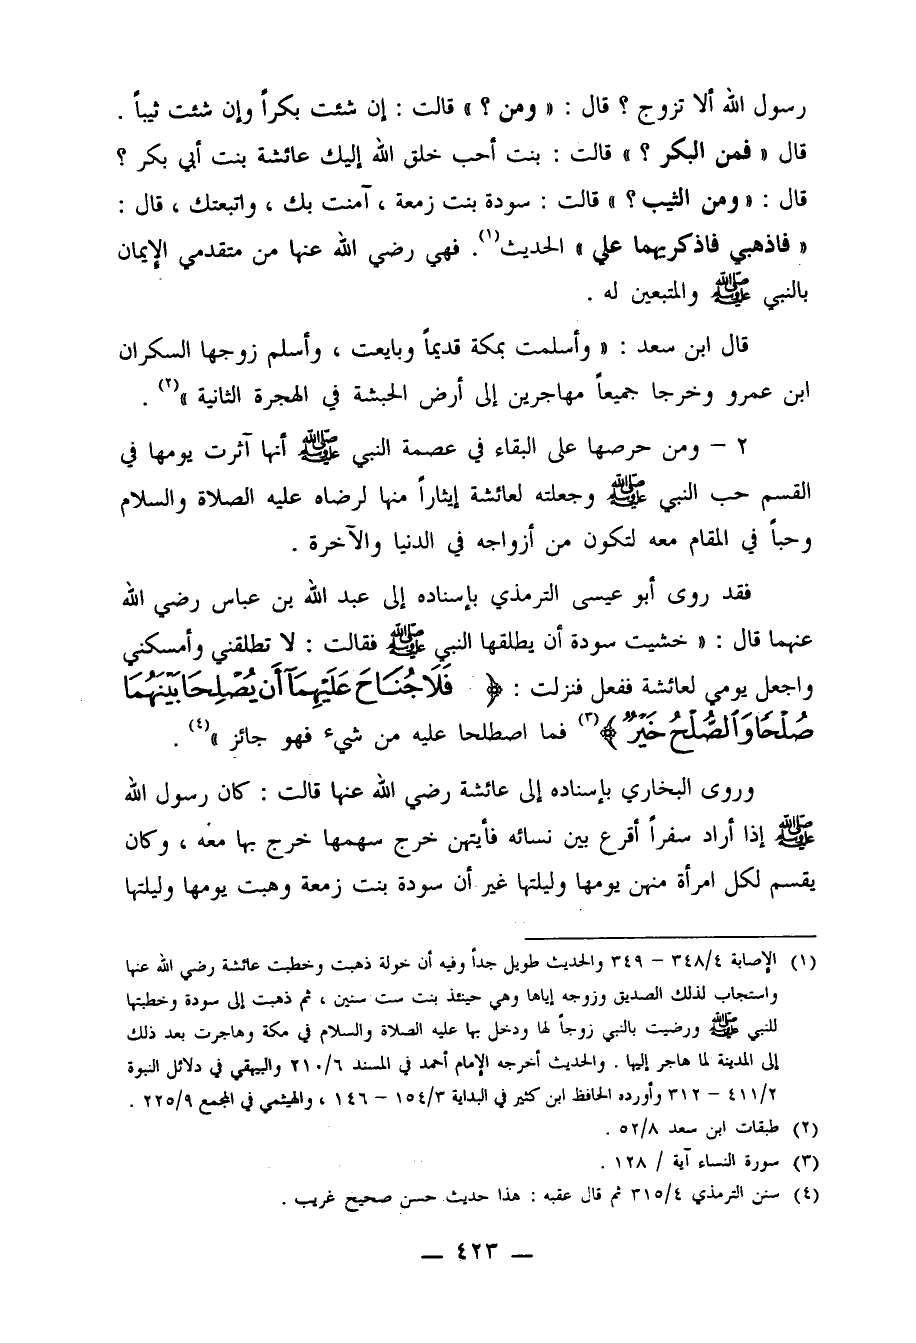 رسول الله ألا تزوج ؟ قال : « ومن ؟ » قالت : إن شئت بكراً وإن شئت ثيباً .
قال « فمن البكر ؟ » قالت : بنت أحب خلق الله إليك عائشة بنت أبي بكر ؟
قال : « ومن الثيب ؟ » قالت : سودة بنت زمعة ، آمنت بك ، واتبعتك ، قال :
« فاذهبي فاذكريهما علي » الحديث(١). فهي رضي الله عنها من متقدمي الإيمان
بالنبي ﷺ والمتبعين له .
قال ابن سعد : « وأسلمت بمكة قديماً وبايعت ، وأسلم زوجها السكران
ابن عمرو وخرجا جميعاً مهاجرين إلى أرض الحبشة في الهجرة الثانية »(٢) .
٢ – ومن حرصها على البقاء في عصمة النبي ﷺ أنها آثرت يومها في
القسم حب النبي ﷺ وجعلته لعائشة إيثاراً منها لرضاه عليه الصلاة والسلام
وحباً في المقام معه لتكون من أزواجه في الدنيا والآخرة .
فقد روى أبو عيسى الترمذي بإسناده إلى عبد الله بن عباس رضي الله
عنهما قال : « خشيت سودة أن يطلقها النبي ﷺ فقالت : لا تطلقني وأمسكني
واجعل يومي لعائشة ففعل فنزلت : ﴿ فَلَا جُنَاحَ عَلَيْهِمَآ أَن يُصْلِحَا بَيْنَهُمَا
صُلْحًا وَٱلصُّلْحُ خَيْرٌ ﴾(٣) فما اصطلحا عليه من شيء فهو جائز »(٤) .
وروى البخاري بإسناده إلى عائشة رضي الله عنها قالت : كان رسول الله
ﷺ إذا أراد سفراً أقرع بين نسائه فأيتهن خرج سهمها خرج بها معه ، وكان
يقسم لكل امرأة منهن يومها وليلتها غير أن سودة بنت زمعة وهبت يومها وليلتها
(١) الإصابة ٣٤٨/٤ – ٣٤٩ والحديث طويل جداً وفيه أن خولة ذهبت وخطبت عائشة رضي الله عنها
واستجاب لذلك الصديق وزوجه إياها وهي حينئذ بنت ست سنين ، ثم ذهبت إلى سودة وخطبتها
للنبي ﷺ ورضيت بالنبي زوجاً لها ودخل بها عليه الصلاة والسلام في مكة وهاجرت بعد ذلك
إلى المدينة لما هاجر إليها . والحديث أخرجه الإمام أحمد في المسند ٢١٠/٦ والبيهقي في دلائل النبوة
٤١١/٢ – ٣١٢ وأورده الحافظ ابن كثير في البداية ١٥٤/٣ – ١٤٦ ، والهيثمي في المجمع ٢٢٥/٩ .
(٢) طبقات ابن سعد ٥٢/٨ .
(٣) سورة النساء آية / ١٢٨ .
(٤) سنن الترمذي ٣١٥/٤ ثم قال عقبه : هذا حديث حسن صحيح غريب .
— ٤٢٣ —